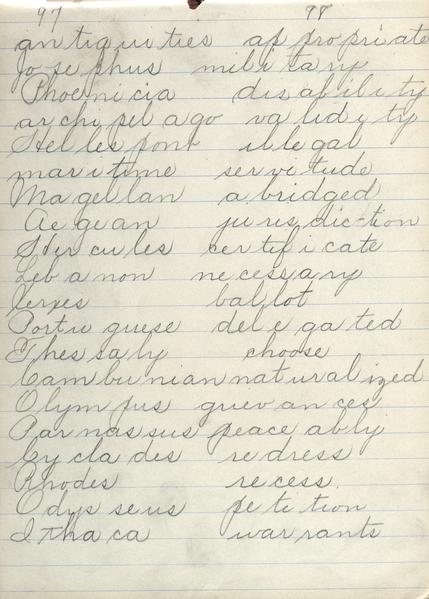 97 98
antiquities appropriate
Josephus military
Phoenicia disability
archipelago validity
Hellespont illegal
maritime servitude
Magellan abridged
Aegean jurisdiction
Hercules certificate
Lebanon necessary
Xerxes ballot
Portuguese delegated
Thessaly choose
Cambunian naturalized
Olympus grievances
Parnassus peaceably
Cyclades redress
Rhodes recess.
Odysseus petition
Ithaca warrants